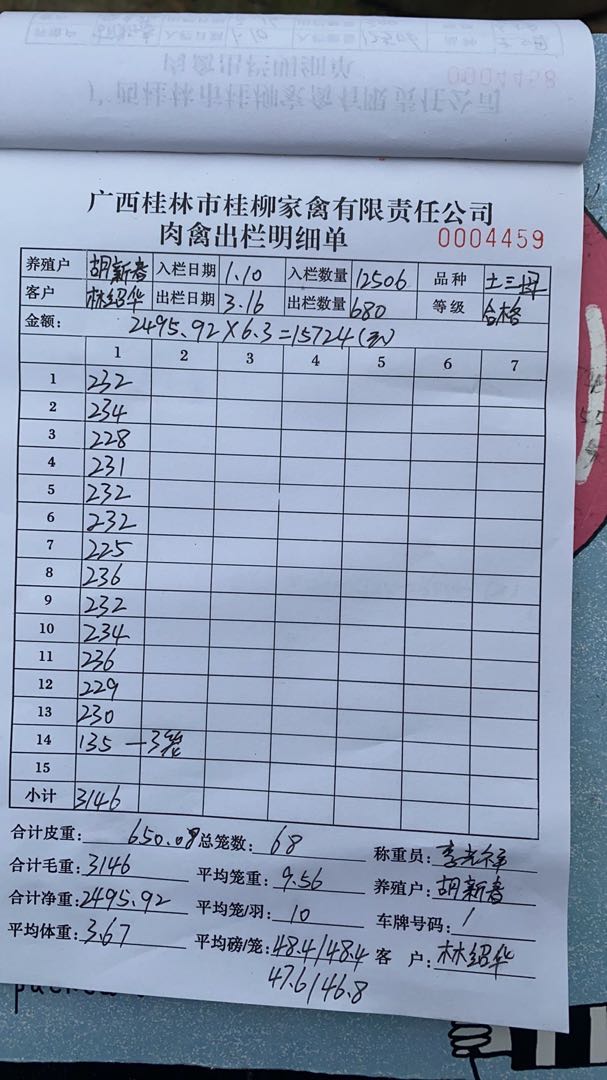 0004458
广西桂林市桂柳家禽有限责任公司
肉禽出栏明细单
0004459
养殖户 胡新春 入栏日期 1.10 入栏数量 12506 品种 土三黑
客户 林绍华 出栏日期 3.16 出栏数量 680 等级 合格
金额: 2495.92×6.3=15724(元)
1 2 3 4 5 6 7
1 232
2 234
3 228
4 231
5 232
6 232
7 225
8 236
9 232
10 234
11 236
12 229
13 230
14 135 —3笼
15
小计 3146
合计皮重: 650.08 总笼数: 68 称重员: 李光祥
合计毛重: 3146 平均笼重: 9.56 养殖户: 胡新春
合计净重: 2495.92 平均笼/羽: 10 车牌号码: /
平均体重: 3.67 平均磅/笼: 48.4/48.4 客 户: 林绍华
47.6/46.8